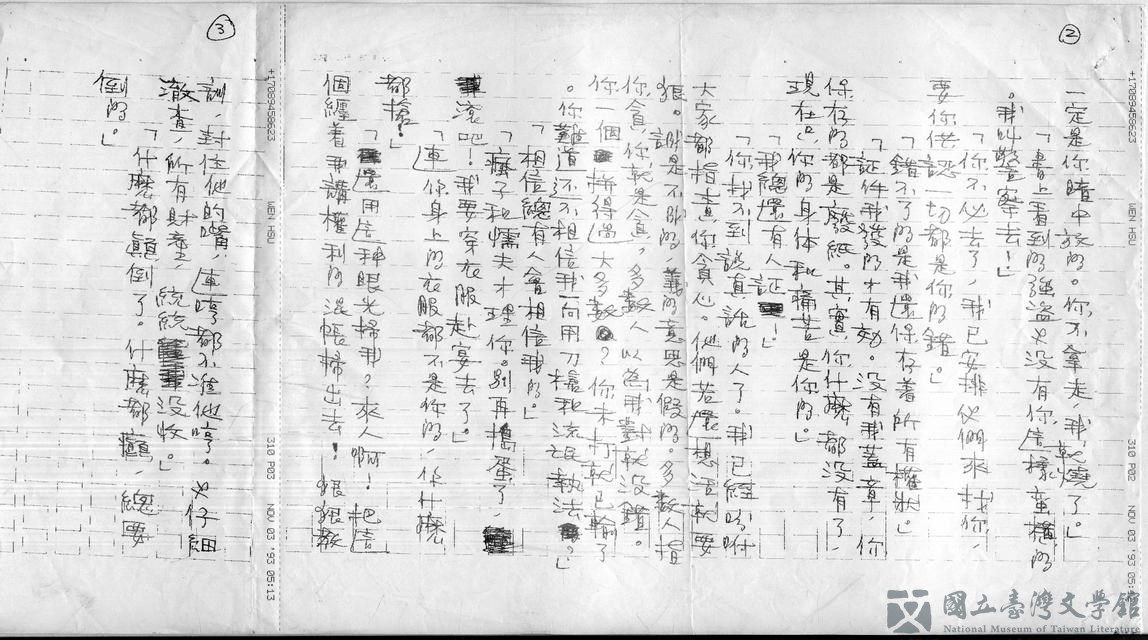 ②
一定是你暗中放的。你不拿走，我就燒了。」
「書上看到的強盜也沒有你這樣蠻橫的
。我叫警察去！」
「你不必去了，我已安排他們來找你，
要你供認一切都是你的錯。」
「錯不了的是我還保存着所有權狀。」
「証件我發的才有効。沒有我蓋章，你
保存的都是廢紙。其實，你什麼都沒有了，
現在只你的身体和痛苦是你的。」
「我總還有人証！」
「你找不到說真話的人了。我已經吩咐
大家都指責你貪心。他們若還想活就要
狠。謝是不的，義的意思是假的。多數人指
你貪，你就是貪，多數人以為我對就沒錯。
你一個拼得過大多數？你未打就已輸了
。你難道還不相信我一向用刀槍和流氓執法？」
「相信總有人會相信我的。」
「瘋子和懦夫才理你。別再搗蛋了，
滾吧！我要穿衣服赴宴去了。」
「連你身上的衣服都不是你的，你什麼
都搶！」
「還用這種眼光掃我？來人啊！把這
個纏着我講權利的混帳掃出去！狠狠教
③
訓，對住他的嘴，連哼都不准他哼。也仔細
澈查，所有財產，統統沒收。」
「什麼都顛倒了。什麼都顛 總要
倒的。」
+17089458623 WEN HSU 310 P02 NOV 03 '93 05:13
+17089458623 WEN HSU 310 P03 NOV 03 '93 05:13
國立臺灣文學館
National Museum of Taiwan Literature